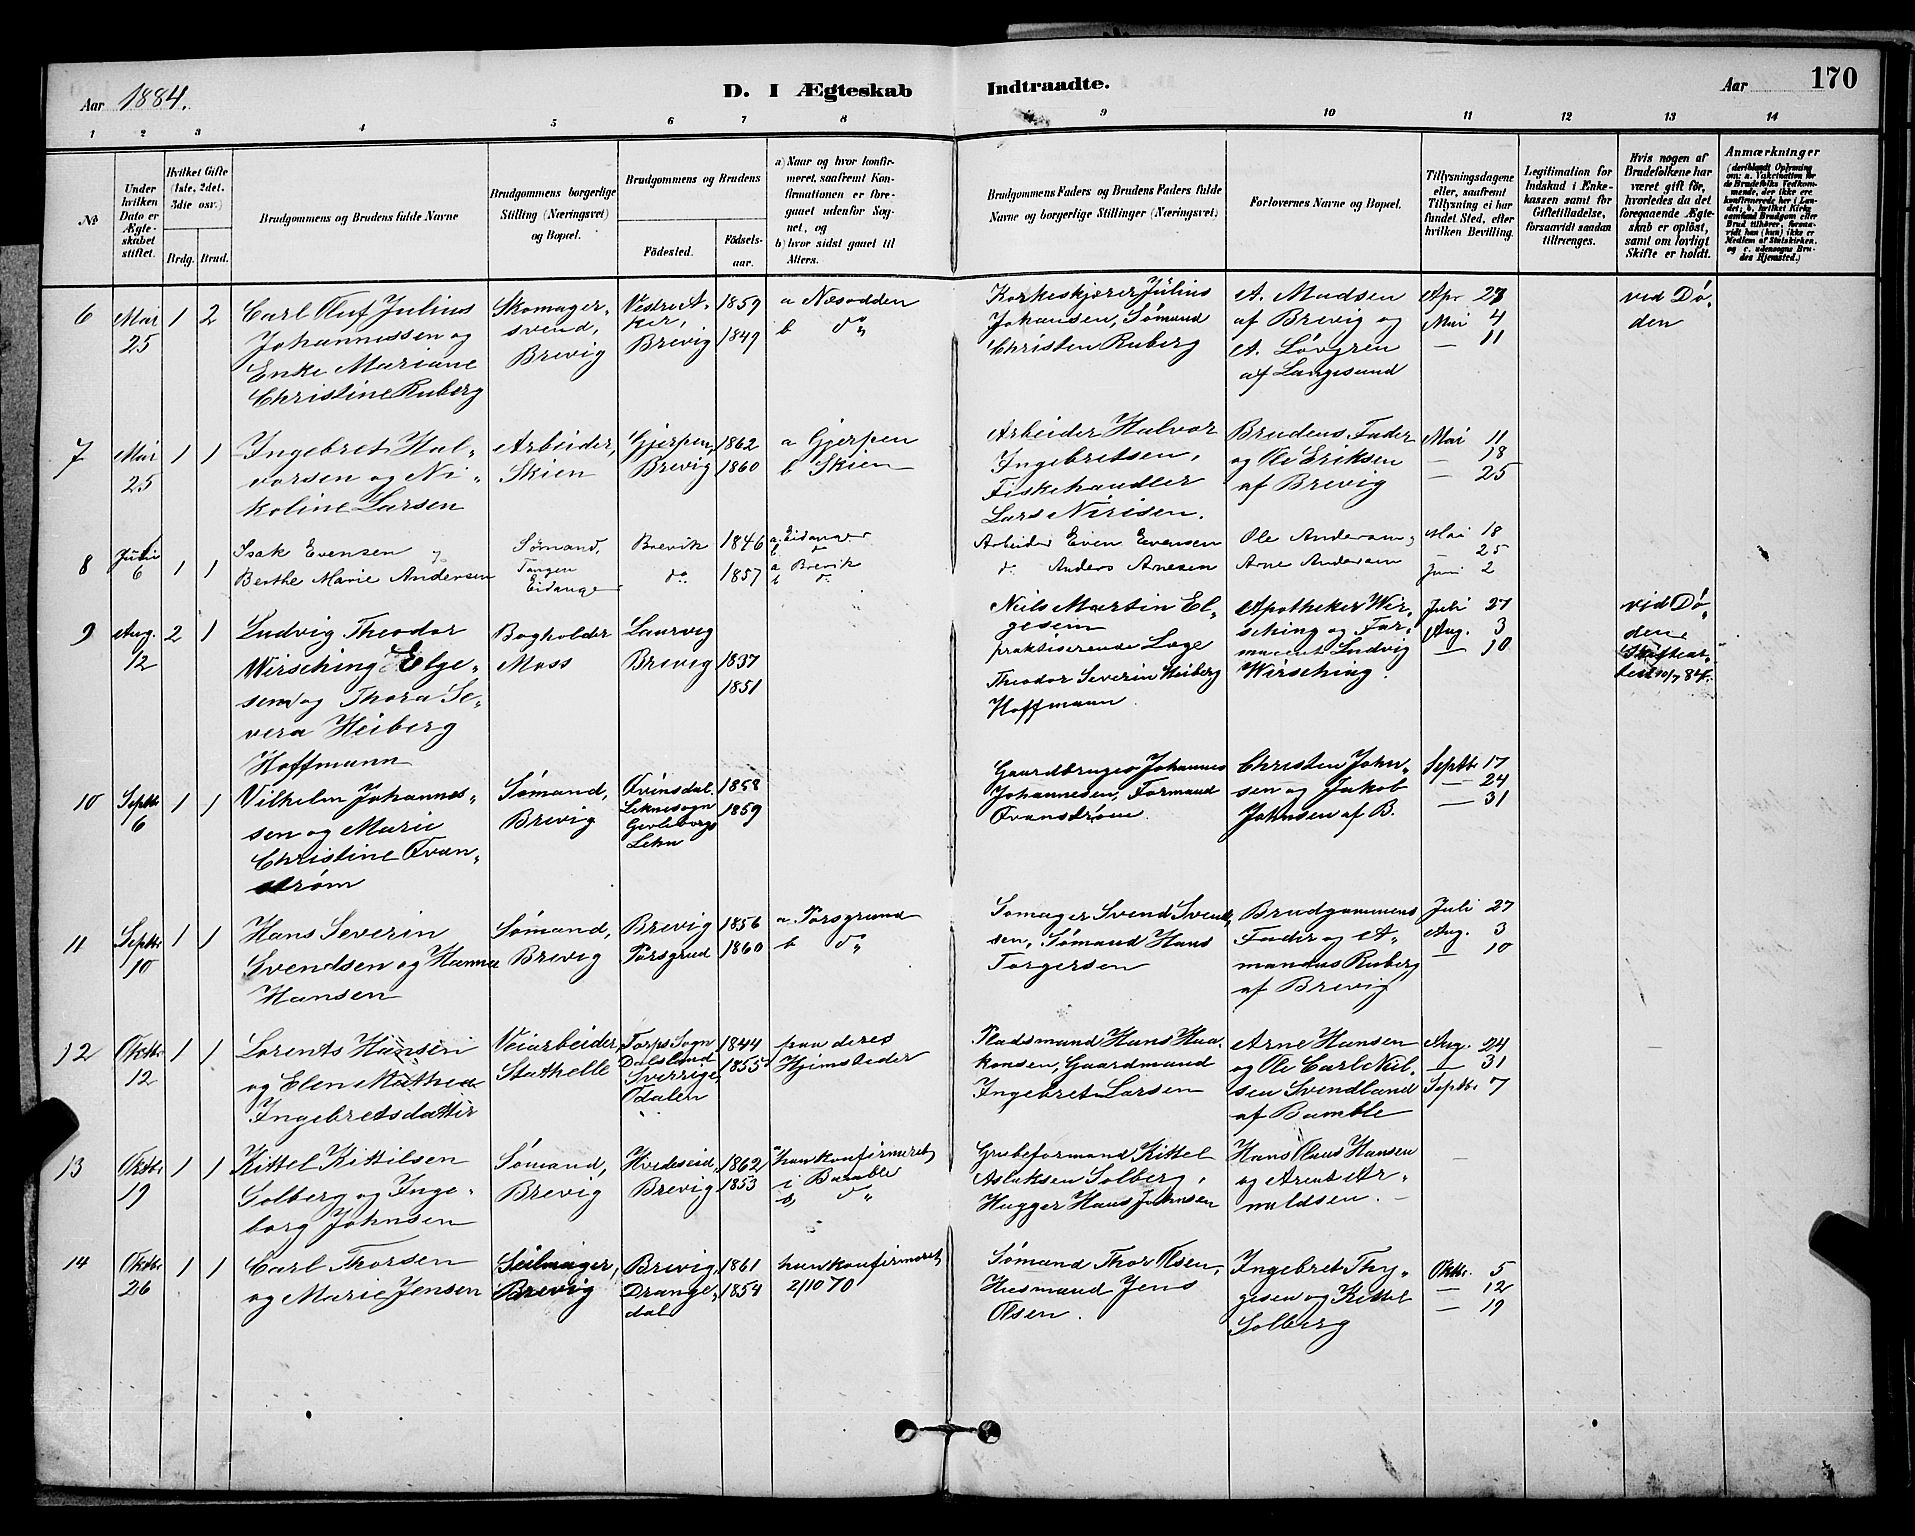 Aar 1884.
D. I Ægteskab
Indtraadte.
Aar
170
1 2 3 4 5 6 7 8 9 10 11 12 13 14
No
Under hvilken Dato er Ægteskabet stiftet.
Hvilket Gifte (1ste, 2det, 3die osv.)
Brdg. Brud.
Brudgommens og Brudens fulde Navne
Brudgommens borgerlige Stilling (Næringsvei) og Bopæl.
Brudgommens og Brudens
Födested.
Födsels-aar.
a) Naar og hvor konfirmeret, saafremt Konfirmationen er foregaaet udenfor Sognet, og
b) hvor sidst gaaet til Alters.
Brudgommens Faders og Brudens Faders fulde Navne og borgerlige Stillinger (Næringsvei)
Forlovernes Navne og Bopæl.
Tillysningsdagene eller, saafremt Tillysning ei har fundet Sted, efter hvilken Bevilling.
Legitimation for Indskud i Enkekassen samt for Giftetilladelse, forsaavidt saadan tiltrænges.
Hvis nogen af Brudefolkene har været gift för, hvorledes da det foregaaende Ægteskab er oplöst, samt om lovligt Skifte er holdt.
Anmærkninger
(deriblandt Oplysning om: a. Vakcination for de Brudefolks Vedkommende, der ikke ere konfirmerede her i Landet; b. hvilket Kirkesamfund Brudgom eller Brud tilhører, forsaavidt han (hun) ikke er Medlem af Statskirken, og c. udensogns Brudes Hjemsted.)
6
Mai 25
1 2
Carl Oluf Julius
Johannessen og
Enke Mariane
Christine Ruberg
Skomager-
svend,
Brevig
Vestre A-
ker,
Brevig
1859
1849
a Næsodden
b do
Korkeskjærer Julius
Johansen, Sømand
Christen Ruberg
A. Madsen
af Brevig og
A. Løvgren
af Langesund
Apr 27
Mai 4
— 11
ved Dø-
den
7
Mai 25
1 1
Ingebret Hal-
vorsen og Ni-
koline Larsen
Arbeider,
Skien
Gjerpen,
Brevig
1862
1860
a Gjerpen
b Skien
Arbeider Halvor
Ingebretsen,
Fiskehandler
Lars Nirisen.
Brudens Fader
og Ole Eriksen
af Brevig
Mai 11
— 18
— 25
8
Juli 6
1 1
Isak Evensen og
Berthe Marie Andersen
Sømand,
Tangen
Eidanger
Brevik
do
1846
1857
a Eidanger
b do
a Brevik
b do
Arbeider Even Evensen
do Anders Arnesen
Ole Andersen,
Arne Andersen
Mai 18
— 25
Juni 2
9
Aug. 12
2 1
Ludvig Theodor
Wirsching Elge-
sem og Thora Se-
vera Heiberg
Hoffmann
Bogholder
Moss
Laurvig
Brevig
1837
1851
Niels Martin El-
gesem
praktiserende Læge
Theodor Severin Heiberg
Hoffmann.
Apotheker Wir-
sching og Far-
maceut Ludvig
Wirsching.
Juli 27
Aug. 3
— 10
ved Dø-
den
Skifteat-
test 10/7 84.
10
Septbr 6
1 1
Vilhelm Johannes-
sen og Marie
Christine Qvan-
strøm
Sømand,
Brevig
Qvinsdal,
Leknesogn
Gevleborgs
Lehn
1858
1859
Gaardbruger Johannes
Johannesen, Formand
Qvanstrøm.
Christen John-
sen og Jakob
Johnsen af B.
Septbr 17
— 24
— 31
11
Septbr 10
1 1
Hans Severin
Svendsen og Hanna
Hansen
Sømand,
Brevig
Brevig
Porsgrud
1856
1860
a Porsgrund
b do
Somager Svend Svend-
sen, Sømand Hans
Torgersen
Brudgommens
Fader og A-
mandus Ruberg
af Brevig
Juli 27
Aug. 3
— 10
12
Oktbr 12
1 1
Lorents Hansen
og Elen Mathea
Ingebretsdatter
Veiarbeider,
Stathelle
Torps Sogn
Dalsland
Sverrige,
Odalen
1844
1855
paa deres
Hjemsteder
Pladsmand Hans Haa-
konsen, Gaardmand
Ingebret Larsen
Arne Hansen
og Ole Carl Niel-
sen Svendland
af Bamble
Aug. 24
— 31
Septbr 7
13
Oktbr 19
1 1
Kittel Kittilsen
Solberg og Inge-
borg Johnsen
Sømand,
Brevig
Hvideseid,
Brevig
1862
1853
a han konfirmeret
i Bamble
b do
Grubeformand Kittel
Aslaksen Solberg,
Hugger Hans Johnsen
Hans Olaus Hansen
og Arent Ar-
noldsen.
—
—
14
Oktbr 26
1 1
Carl Thorsen
og Marie Jensen
Seilmager,
Brevig
Brevig,
Drange-
dal
1861
1854
hun konfirmeret
2/10 70
Sømand Thor Olsen,
Husmand Jens
Olsen.
Ingebret Thy-
gesen og Kittel
Solberg
Oktbr. 5
— 12
— 19